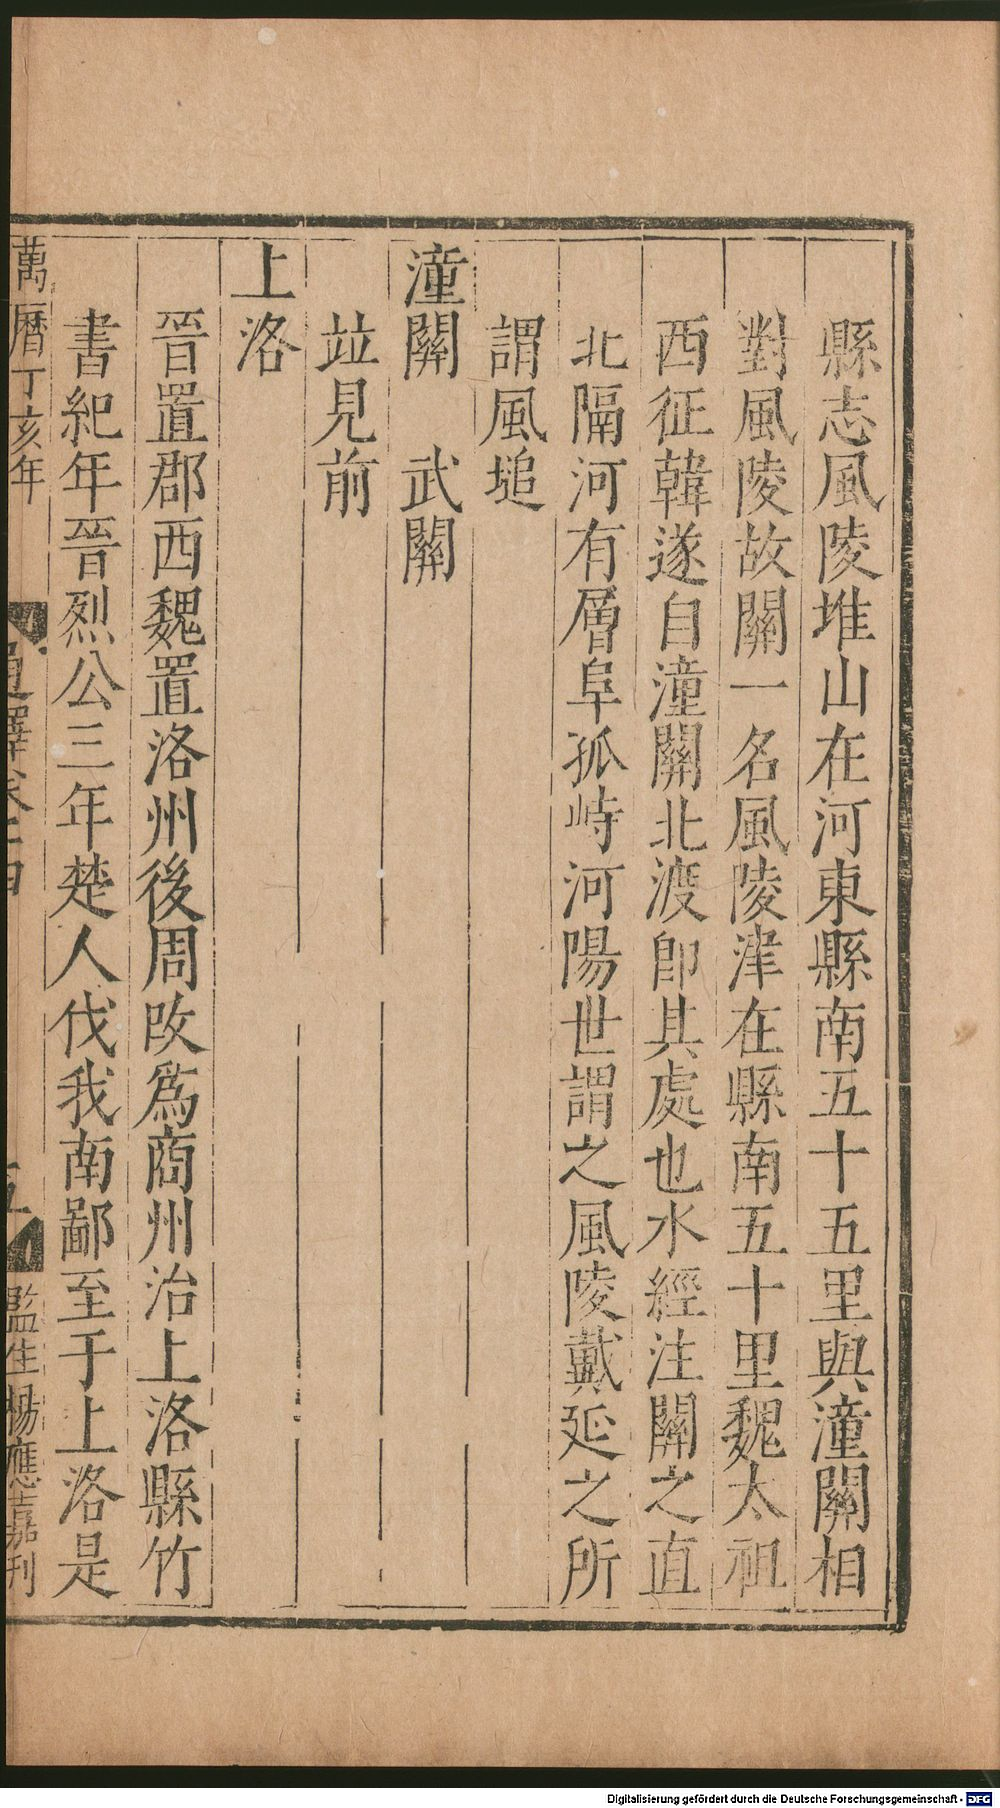 縣志風陵堆山在河東縣南五十五里與潼關相
對風陵故關一名風陵津在縣南五十里魏太祖
西征韓遂自潼關北渡卽其處也水經注關之直
北隔河有層阜孤峙河陽世謂之風陵戴延之所
謂風塠
潼關　武關
竝見前
上洛
晉置郡西魏置洛州後周改爲商州治上洛縣竹
書紀年晉烈公三年楚人伐我南鄙至于上洛是
萬曆丁亥年
通釋卷十四
五
監生楊應嘉刊
Digitalisierung gefördert durch die Deutsche Forschungsgemeinschaft - DFG